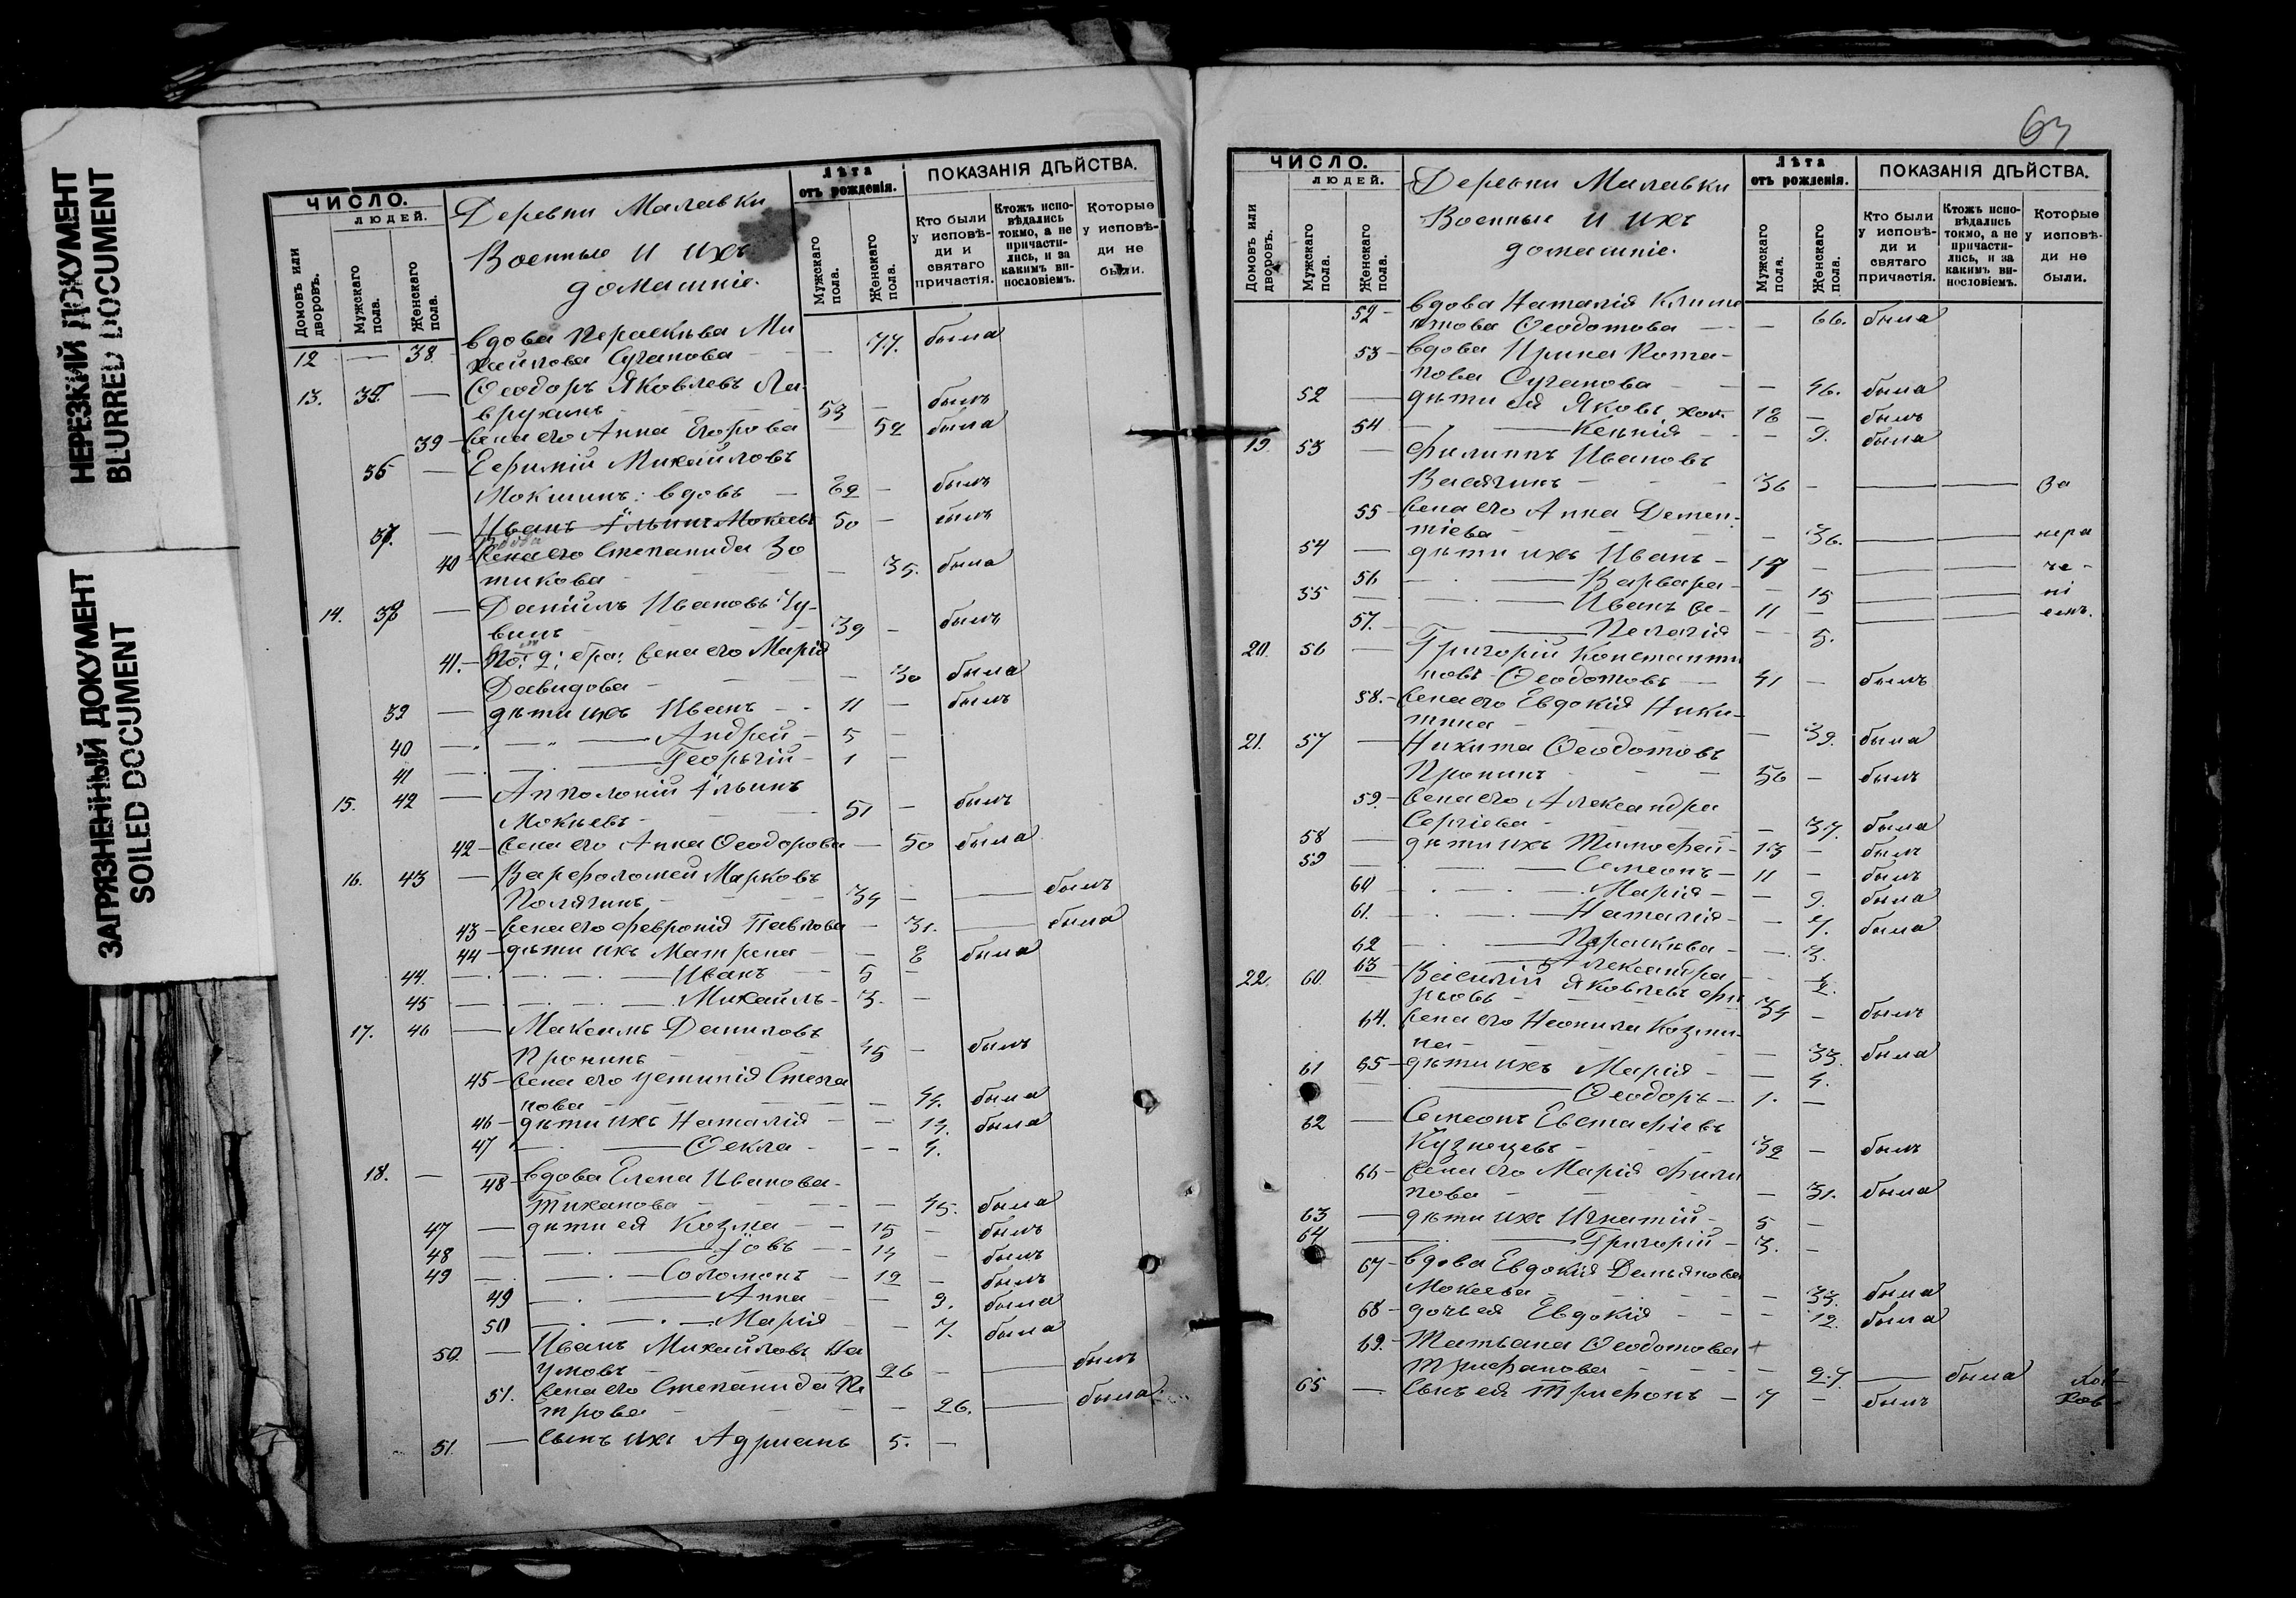 НЕРЕЗКИЙ ДОКУМЕНТ
BLURRED DOCUMENT
ЗАГРЯЗНЕННЫЙ ДОКУМЕНТ
SOILED DOCUMENT
ЧИСЛО.
ЛЮДЕЙ.
Домовъ или дворовъ.
Мужскаго пола.
Женскаго пола.
Деревни Малевки
Военные и ихъ
домашніе.
Лѣта
отъ рожденія.
Мужскаго пола.
Женскаго пола.
ПОКАЗАНІЯ ДѢЙСТВА.
Кто были у исповѣди и святаго причастія.
Ктожъ исповѣдались токмо, а не причастились, и за какимъ винословіемъ.
Которые у исповѣди не были.
12 — 38 вдова Параскѣва Ми
хайлова Суханова — 77. была
13. — Ѳеодоръ Яковлевъ Ла
врухинъ 53 — былъ
39 — жена его Анна Егорова — 52 была
— Ефимій Михайловъ
Мокшинъ: вдовъ — 62 — былъ
37. — Иванъ Ильинъ Мокеевъ 50 — былъ
40 жена его Степанида Зо
тикова — 35. была
14. — Даніилъ Ивановъ
39 — былъ
41. — По: 2: бра: жена его Марія
Давидова — 30 была
39 — дѣти ихъ Иванъ — 11 — былъ
40 — Андрей — 5 —
41 — Георгій — 1 —
15. 42 — Апполоній Ильинъ
Мокѣевъ — 51 — былъ
42 — жена его Анна Ѳеодорова — 50 была
16. 43 — Варфоломей Марковъ
Полягинъ — 34 — — былъ
43 — жена его Февронія Павлова — 31. — была
44 — дѣти ихъ Матрена — 8 была
44. — Иванъ — 5 —
45 — Михаилъ — 3. —
17. 46 — Максимъ Даниловъ
Пронинъ — 45 — былъ
45 — жена его Устинія Степа
нова — 44. была
46 — дѣти ихъ Наталія — 14. была
47 — Ѳекла — 4.
18. — 48 — вдова Елена Иванова
Тиханова — 45. была
47 — дѣти ея Козма — 15 — былъ
48 — Іовъ — 14 — былъ
49 — Соломонъ — 12 — былъ
49 — Анна — 9. была
50 — Марія — 7. была
50. — Иванъ Михайловъ На
умовъ — 26 — — былъ
51. жена его Степанида Пе
трова — 26. — была
51. — сынъ ихъ Адріанъ 5. —
63
ЧИСЛО.
ЛЮДЕЙ.
Домовъ или дворовъ.
Мужскаго пола.
Женскаго пола.
Деревни Малевки
Военные и ихъ
домашніе.
Лѣта
отъ рожденія.
Мужскаго пола.
Женскаго пола.
ПОКАЗАНІЯ ДѢЙСТВА.
Кто были у исповѣди и святаго причастія.
Ктожъ исповѣдались токмо, а не причастились, и за какимъ винословіемъ.
Которые у исповѣди не были.
52 — вдова Наталія Климе
нтова Ѳеодотова — 66. была
53 — вдова Ирина Пота-
пова Суханова — 46. была
52 — дѣти ея Яковъ хол. 18 — былъ
54 — Ксенія — 9. была
19. 53 — Филиппъ Ивановъ
36 — — — За
55 — жена его Анна Демен-
тіева — 36. — — нера
54 — дѣти ихъ Иванъ — 17 — — — че-
56 — Варвара — 15 — — ні
55 — Иванъ 11 — — — емъ.
57. — Пелагія — 5.
20. 56 — Григорій Константи
новъ Ѳеодотовъ — 41 — былъ
58. — жена его Евдокія Ники-
тина — 39. была
21. 57 — Никита Ѳеодотовъ
Пронинъ — 36 — былъ
59. — жена его Александра
Сергіева — 37. была
58 — дѣти ихъ Тимофей — 13 — былъ
59 — Симеонъ — 11 — былъ
60 — Марія — 9. была
61. — Наталія — 7. была
62 — Параскѣва — 3.
63 — Александра
22. 60 — Василій Яковлевъ
34 — былъ
64. жена его Неонила Козми-
на — 33 была
65 — дѣти ихъ Марія — 4.
61 — Ѳеодоръ — 1. —
62 — Симеонъ Евстафіевъ
Кузнецовъ — 32 — былъ
66 — жена его Марія Фили
пова — 31. была
63 — дѣти ихъ Игнатій — 5 —
64 — Григорій — 3. —
67 — вдова Евдокія Демьянова
Мокеева — 33. была
68 — дочь ея Евдокія — 12. была
69. — Татьяна Ѳеодотова +
Трифанова — 27. — была
65 — сынъ ея Трифонъ — 7 — былъ